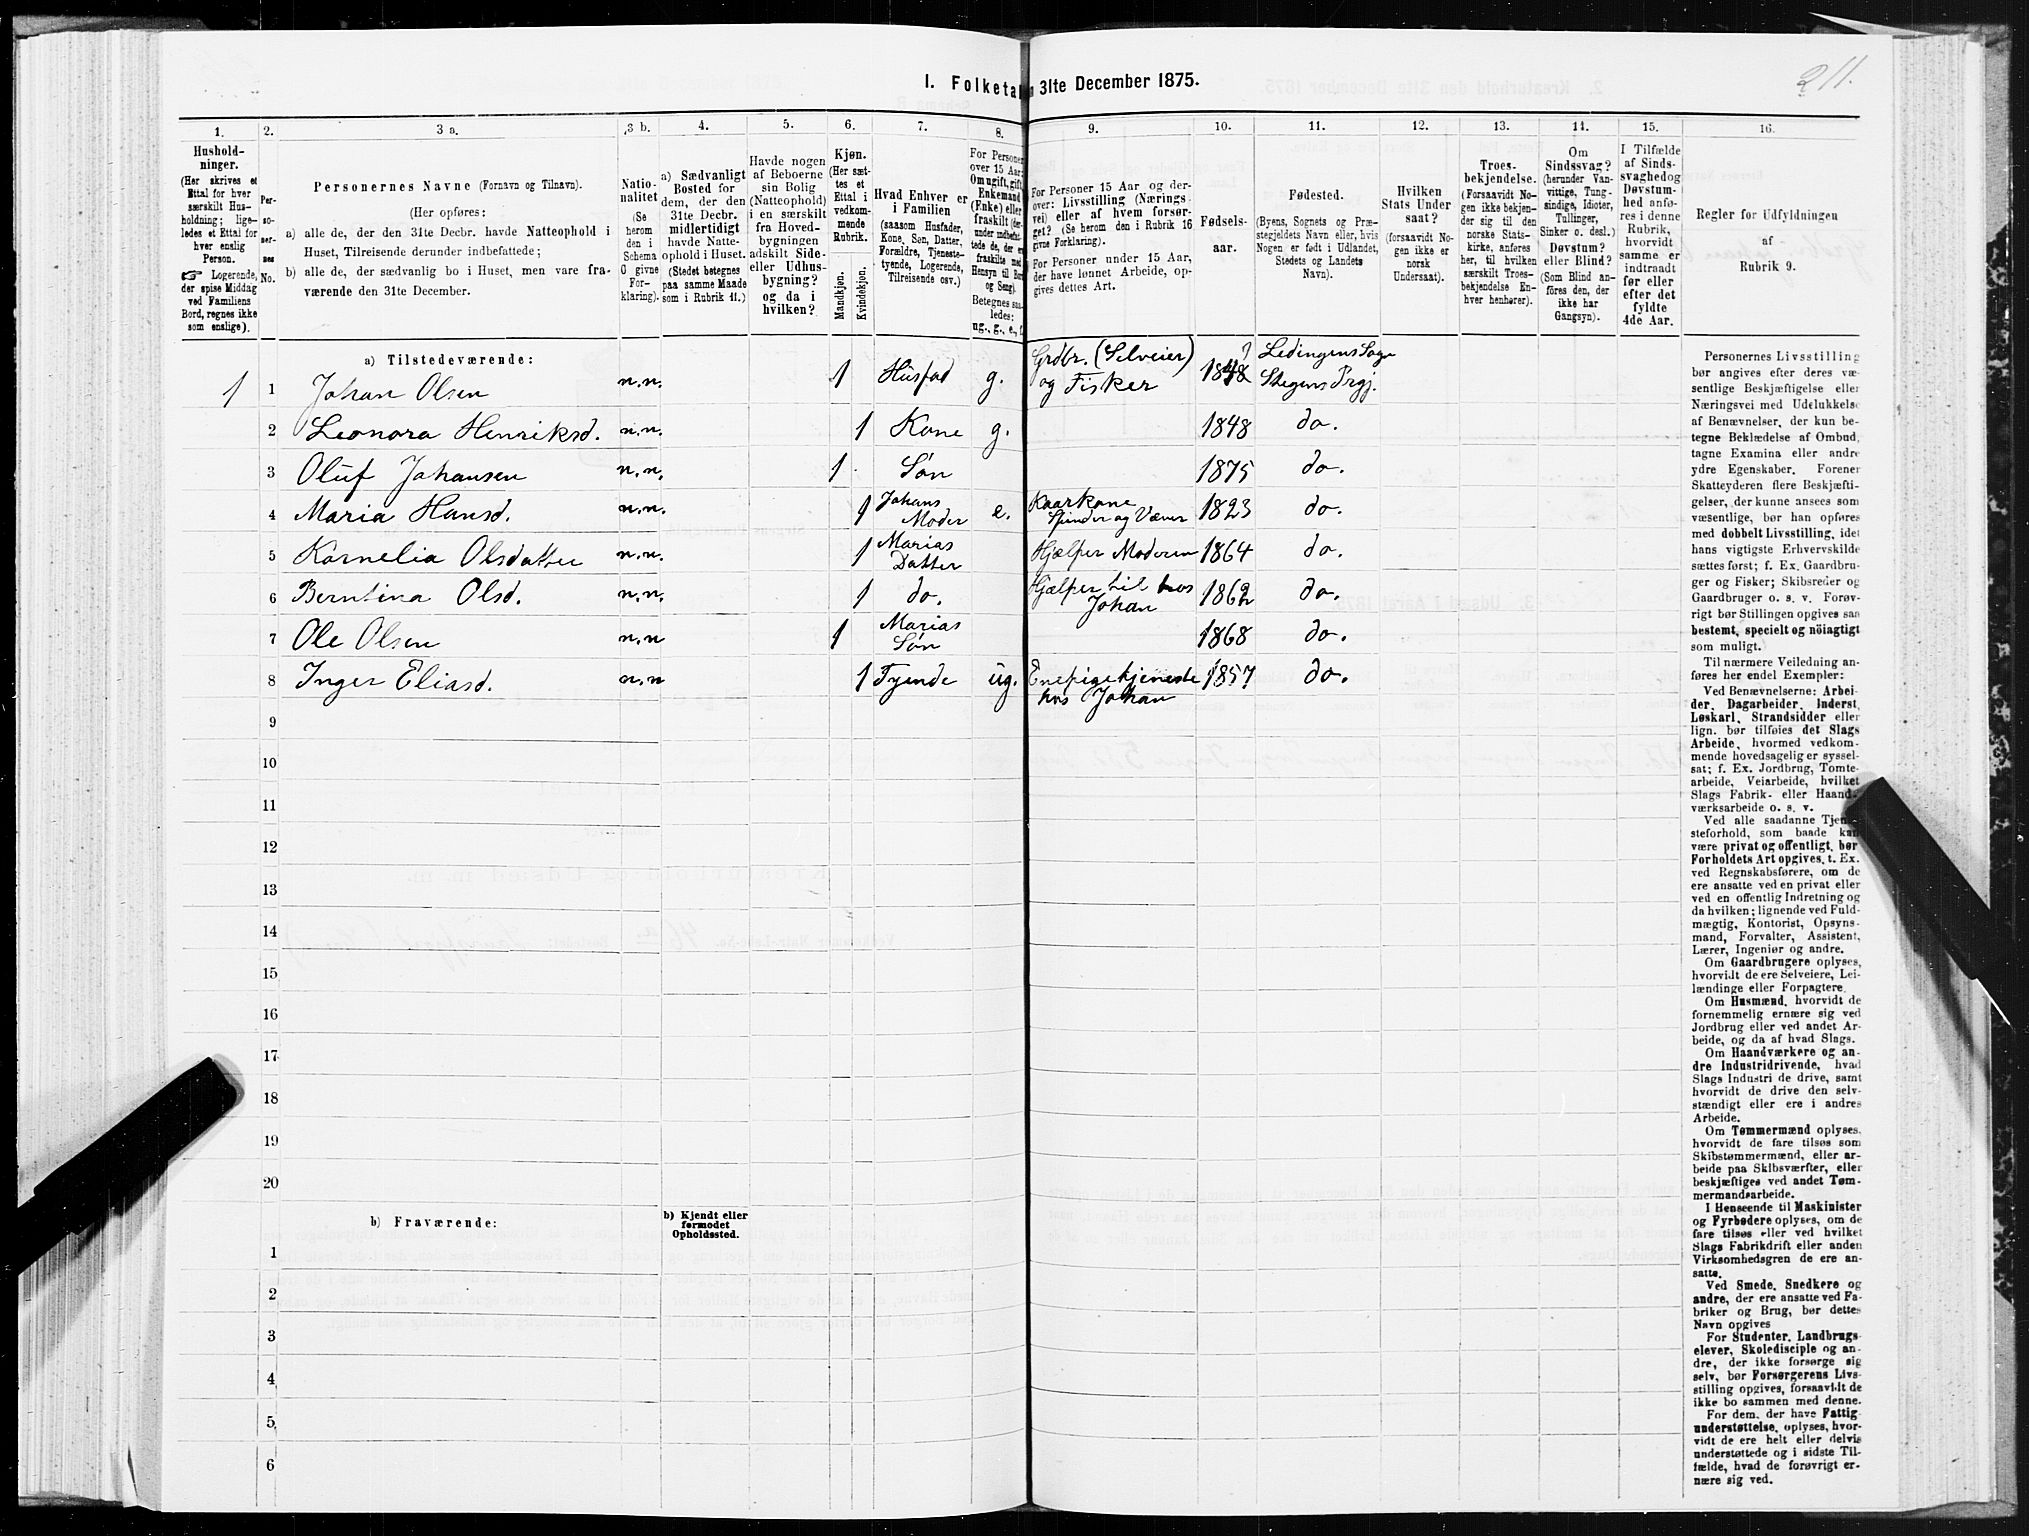 I. Folketal 31te December 1875.
211.
1.
2.
3 a.
3 b.
4.
5.
6.
7.
8.
9.
10.
11.
12.
13.
14.
15.
16.
Hushold-
ninger.
(Her skrives et
Ettal for hver
særskilt Hus-
holdning; lige-
ledes et Ettal for
hver enslig
Person.
☞ Logerende,
der spise Middag
ved Familiens
Bord, regnes ikke
som enslige).
Per-
so-
ner-
nes
No.
Personernes Navne (Fornavn og Tilnavn).
(Her opføres:
a) alle de, der den 31te Decbr. havde Natteophold i
Huset, Tilreisende derunder indbefattede;
b) alle de, der sædvanlig bo i Huset, men vare fra-
værende den 31te December.
Natio-
nalitet
(Se
herom
den i
Schema
O givne
For-
klaring).
a) Sædvanligt
Bosted for
dem, der den
31te Decbr.
midlertidigt
havde Natte-
ophold i Huset.
(Stedet betegnes
paa samme Maade
som i Rubrik 11.)
Havde nogen
af Beboerne
sin Bolig
(Natteophold)
i en særskilt
fra Hoved-
bygningen
adskilt Side-
eller Udhus-
bygning?
og da i
hvilken?
Kjøn.
(Her sæt-
tes et
Ettal i
vedkom-
mende
Rubrik.
Mandkjøn.
Kvindekjøn.
Hvad Enhver er
i Familien
(saasom Husfader,
Kone, Søn, Datter,
Forældre, Tjeneste-
tyende, Logerende,
Tilreisende osv.)
For Personer
over 15 Aar:
Om ugift, gift,
Enkemand
(Enke) eller
fraskilt (der-
under indbefat-
tede de, der ere
fraskilte med
Hensyn til Bord
og Seng).
Betegnes saa-
ledes:
ug., g., e., f.
For Personer 15 Aar og der-
over: Livsstilling (Nærings-
vei) eller af hvem forsør-
get? (Se herom den i Rubrik 16
givne Forklaring).
For Personer under 15 Aar,
der have lønnet Arbeide, op-
gives dettes Art.
Fødsels-
aar.
Fødested.
(Byens, Sognets og Præ-
stegjeldets Navn eller, hvis
Nogen er født i Udlandet,
Stedets og Landets
Navn).
Hvilken
Stats Under
saat?
(forsaavidt No-
gen ikke er
norsk
Undersaat).
Troes-
bekjendelse.
(Forsaavidt No-
gen ikke bekjen-
der sig til den
norske Stats-
kirke, anføres
her, til hvilken
særskilt Troes-
bekjendelse En-
hver henhører).
Om
Sindssvag?
(herunder Van-
vittige, Tung-
sindige, Idioter,
Tullinger,
Sinker o. desl.)
Døvstum?
eller Blind?
(Som Blind an-
føres den, der
ikke har
Gangsyn).
I Tilfælde
af Sinds-
svaghed og
Døvstum-
hed anfø-
res i denne
Rubrik,
hvorvidt
samme er
indtraadt
før eller
efter det
fyldte
4de Aar.
Regler for Udfyldningen
af
Rubrik 9.
a) Tilstedeværende:
1 1 Johan Olsen n.n. 1 Husfad g. Grdbr. (Selveier) og Fisker 1848 ? Lødingens Sogn Stegens Prgj.
2 Leonora Henriksd. n.n. 1 Kone g. 1848 do.
3 Oluf Johansen n.n. 1 Søn 1875 do.
4 Maria Hansd. n.n. 1 Johans Moder e. Kaarkone Spinder og Væver 1823 do.
5 Kornelia Olsdatter n.n. 1 Marias Datter Hjælper Moderen 1864 do.
6 Berntina Olsd. n.n. 1 do. Hjælper til hos Johan 1862 do.
7 Ole Olsen n.n 1 Marias Søn 1868 do.
8 Inger Eliasd. n.n 1 Tyende ug. Enepigetjeneste hos Johan 1857 do.
9
10
11
12
13
14
15
16
17
18
19
20
b) Fraværende:
b) Kjendt eller
formodet
Opholdssted.
1
2
3
4
5
6
Personernes Livsstilling
bør angives efter deres væ-
sentlige Beskjæftigelse eller
Næringsvei med Udelukkelse
af Benævnelser, der kun be-
tegne Beklædelse af Ombud,
tagne Examina eller andre
ydre Egenskaber. Forener
Skatteyderen flere Beskjæfti-
gelser, der kunne ansees som
væsentlige, bør han opføres
med dobbelt Livsstilling, idet
hans vigtigste Erhvervskilde
sættes først; f. Ex. Gaardbru-
ger og Fisker; Skibsreder og
Gaardbruger o. s. v. Forøv-
rigt bør Stillingen opgives saa
bestemt, specielt og nöiagtigt
som muligt.
Til nærmere Veiledning an-
føres her endel Exempler:
Ved Benævnelserne: Arbei-
der, Dagarbeider, Inderst,
Løskarl, Strandsidder eller
lign. bør tilføies det Slags
Arbeide, hvormed vedkom-
mende hovedsagelig er syssel-
sat; f. Ex. Jordbrug, Tomte-
arbeide, Veiarbeide, hvilket
Slags Fabrik- eller Haand-
værksarbeide o. s. v.
Ved alle saadanne Tjene-
steforhold, som baade kan
være privat og offentligt, bør
Forholdets Art opgives, t. Ex.
ved Regnskabsførere, om de
ere ansatte ved en privat eller
ved en offentlig Indretning og
da hvilken; lignende ved Fuld-
mægtig, Kontorist, Opsyns-
mand, Forvalter, Assistent,
Lærer, Ingeniør og andre.
Om Gaardbrugere oplyses,
hvorvidt de ere Selveiere, Lei-
lændinge eller Forpagtere.
Om Husmænd, hvorvidt de
fornemmelig ernære sig ved
Jordbrug eller ved andet Ar-
beide, og da af hvad Slags.
Om Haandværkere og an-
dre Industridrivende, hvad
Slags Industri de drive, samt
hvorvidt de drive den selv-
stændigt eller ere i andres
Arbeide.
Om Tømmermænd oplyses,
hvorvidt de fare tilsøs som
Skibstømmermænd, eller ar-
beide paa Skibsværfter, eller
beskjæftiges ved andet Tøm-
mermandsarbeide.
I Henseende til Maskinister
og Fyrbødere oplyses, om de
fare tilsøs eller ved hvilket
Slags Fabrikdrift eller anden
Virksomhedsgren de ere an-
satte.
Ved Smede, Snedkere og
andre, der ere ansatte ved Fa-
briker og Brug, bør dettes
Navn opgives
For Studenter, Landbrugs-
elever, Skoledisciple og an-
dre, der ikke forsørge sig
selv, bør Forsørgerens Livs-
stilling opgives, forsaavidt de
ikke bo sammen med denne.
For dem, der have Fattig-
understøttelse, oplyses, hvor-
vidt de ere helt eller delvis
understøttede og i sidste Til-
fælde, hvad de forøvrigt er-
nære sig ved.